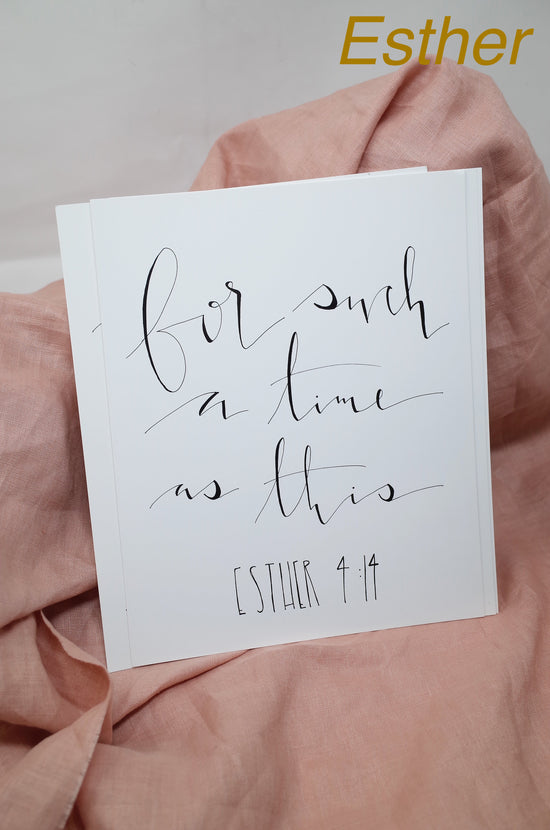 Esther
for such
a time
as this
ESTHER 4:14